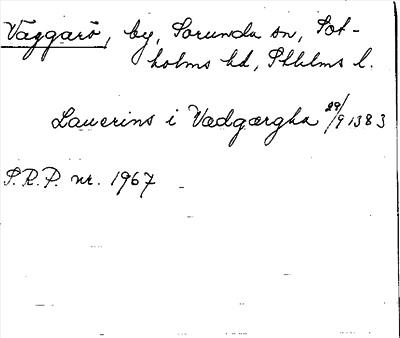 Väggarö, by, Sorunda sn, Sot-
holms hd, Sthlms l.
Lauerins i Vædgærgha 29/9 1383
S.R.P. nr. 1967